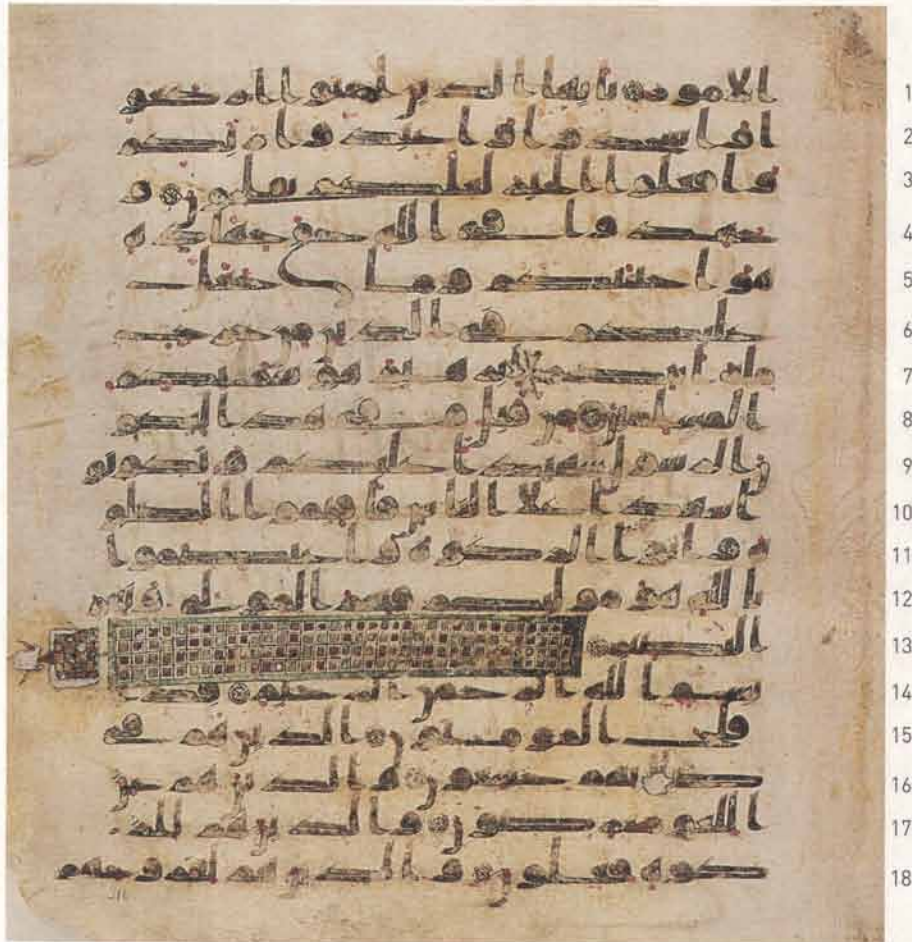 1 الامور يايها الذين امنوا اركعو
2 ا واسجدوا واعبدوا ربكم
3 وافعلوا الخير لعلكم تفلحون و
4 جهدوا في الله حق جهاده
5 هو اجتبيكم وما جعل
6 عليكم في الدين من حرج
7 ملة ابيكم ابرهيم هو سميكم
8 المسلمين من قبل وفي هذا ليكو
9 ن الرسول شهيدا عليكم وتكونو
10 ا شهدا على الناس فاقيموا الصلو
11 ة واتوا الزكوة واعتصموا
12 بالله هو موليكم فنعم المولى ونعم
13 النصير
14 بسم الله الرحمن الرحيم قد ا
15 فلح المومنون الذين هم في
16 صلاتهم خشعون والذين هم عن
17 اللغو معرضون والذين هم للز
18 كوة فعلون والذين هم لفروجهم